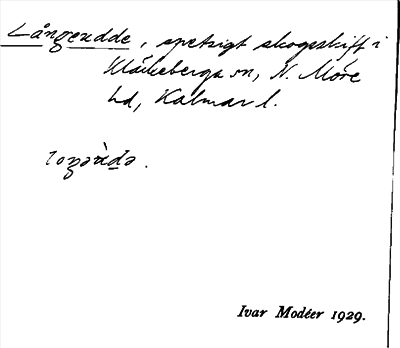 Långeudde, spetsigt skogsskift i
Kläckeberga sn, N. Möre
hd, Kalmar l.
Ivar Modéer 1929.